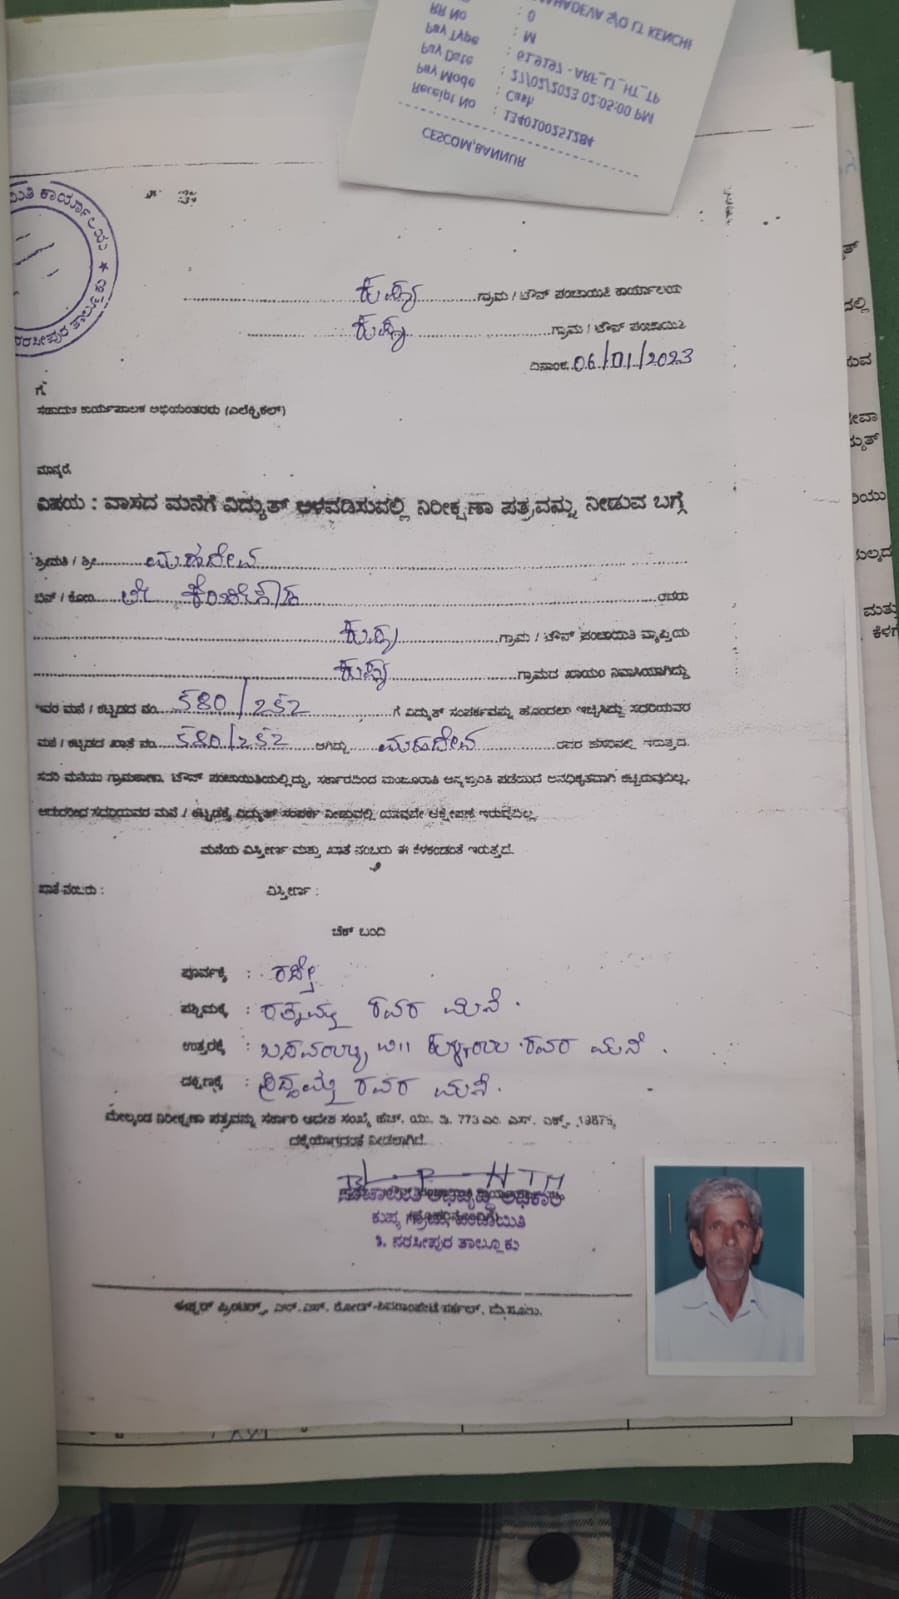 MAHADEVA S/O LT KENCHI
RR No : 0
Pay Type : M
Pay Date : 27/02/2023 02:05:00 PM
Pay Mode : Cash
Receipt No : 1340100251284
CESCOM,BANNUR
ಕುಪ್ಯ ಗ್ರಾಮ / ಟೌನ್ ಪಂಚಾಯಿತಿ ಕಾರ್ಯಾಲಯ
ಕುಪ್ಯ ಗ್ರಾಮ / ಟೌನ್ ಪಂಚಾಯಿತಿ
ದಿನಾಂಕ 06/01/2023
ಗೆ
ಸಹಾಯಕ ಕಾರ್ಯಪಾಲಕ ಅಭಿಯಂತರರು (ಎಲೆಕ್ಟ್ರಿಕಲ್)
ಮಾನ್ಯರೆ,
ವಿಷಯ : ವಾಸದ ಮನೆಗೆ ವಿದ್ಯುತ್ ಅಳವಡಿಸುವಲ್ಲಿ ನಿರೀಕ್ಷಣಾ ಪತ್ರವನ್ನು ನೀಡುವ ಬಗ್ಗೆ
ಶ್ರೀಮತಿ / ಶ್ರೀ ಮಹದೇವ
ಬಿನ್ / ಕೋಂ ಲೇ ಕೆಂಚೇಗೌಡ ರವರು
ಕುಪ್ಯ ಗ್ರಾಮ / ಟೌನ್ ಪಂಚಾಯಿತಿ ವ್ಯಾಪ್ತಿಯ
ಕುಪ್ಯ ಗ್ರಾಮದ ಖಾಯಂ ನಿವಾಸಿಯಾಗಿದ್ದು
ಇವರ ಮನೆ / ಕಟ್ಟಡದ ನಂ. 580/252 ಗೆ ವಿದ್ಯುತ್ ಸಂಪರ್ಕವನ್ನು ಹೊಂದಲು ಇಚ್ಛಿಸಿದ್ದು ಸದರಿಯವರ
ಮನೆ / ಕಟ್ಟಡದ ಖಾತೆ ನಂ. 580/252 ಆಗಿದ್ದು ಮಹದೇವ ರವರ ಹೆಸರಿನಲ್ಲಿ ಇರುತ್ತದೆ.
ಸದರಿ ಮನೆಯು ಗ್ರಾಮಠಾಣಾ, ಟೌನ್ ಪಂಚಾಯಿತಿಯಲ್ಲಿದ್ದು, ಸರ್ಕಾರದಿಂದ ಮಂಜೂರಾತಿ ಪಡೆಯದೆ ಅನಧಿಕೃತವಾಗಿ ಕಟ್ಟಿರುವುದಿಲ್ಲ.
ಆದುದರಿಂದ ಸದರಿಯವರ ಮನೆ / ಕಟ್ಟಡಕ್ಕೆ ವಿದ್ಯುತ್ ಸಂಪರ್ಕ ನೀಡುವಲ್ಲಿ ಯಾವುದೇ ಆಕ್ಷೇಪಣೆ ಇರುವುದಿಲ್ಲ.
ಮನೆಯ ವಿಸ್ತೀರ್ಣ ಮತ್ತು ಖಾತೆ ನಂಬರು ಈ ಕೆಳಕಂಡಂತೆ ಇರುತ್ತದೆ.
ಖಾತೆ ನಂಬರು : ವಿಸ್ತೀರ್ಣ :
ಚೆಕ್ ಬಂದಿ
ಪೂರ್ವಕ್ಕೆ : ರಸ್ತೆ
ಪಶ್ಚಿಮಕ್ಕೆ : ರತ್ನಮ್ಮ ರವರ ಮನೆ.
ಉತ್ತರಕ್ಕೆ : ಬಸವಯ್ಯ ರವರ ಮನೆ.
ದಕ್ಷಿಣಕ್ಕೆ : ಸಿದ್ದಮ್ಮ ರವರ ಮನೆ.
ಮೇಲ್ಕಂಡ ನಿರೀಕ್ಷಣಾ ಪತ್ರವನ್ನು ಸರ್ಕಾರಿ ಆದೇಶ ಸಂಖ್ಯೆ ಹೆಚ್. ಯು. ಡಿ. 773 ಎಂ. ಎನ್. ಎಕ್ಸ್. 1987ಕ್ಕೆ
ನೀಡಲಾಗಿದೆ.
ಪಂಚಾಯಿತಿ ಅಭಿವೃದ್ಧಿ ಅಧಿಕಾರಿ
ಕುಪ್ಯ ಗ್ರಾಮ ಪಂಚಾಯಿತಿ
ತಿ. ನರಸೀಪುರ ತಾಲ್ಲೂಕು